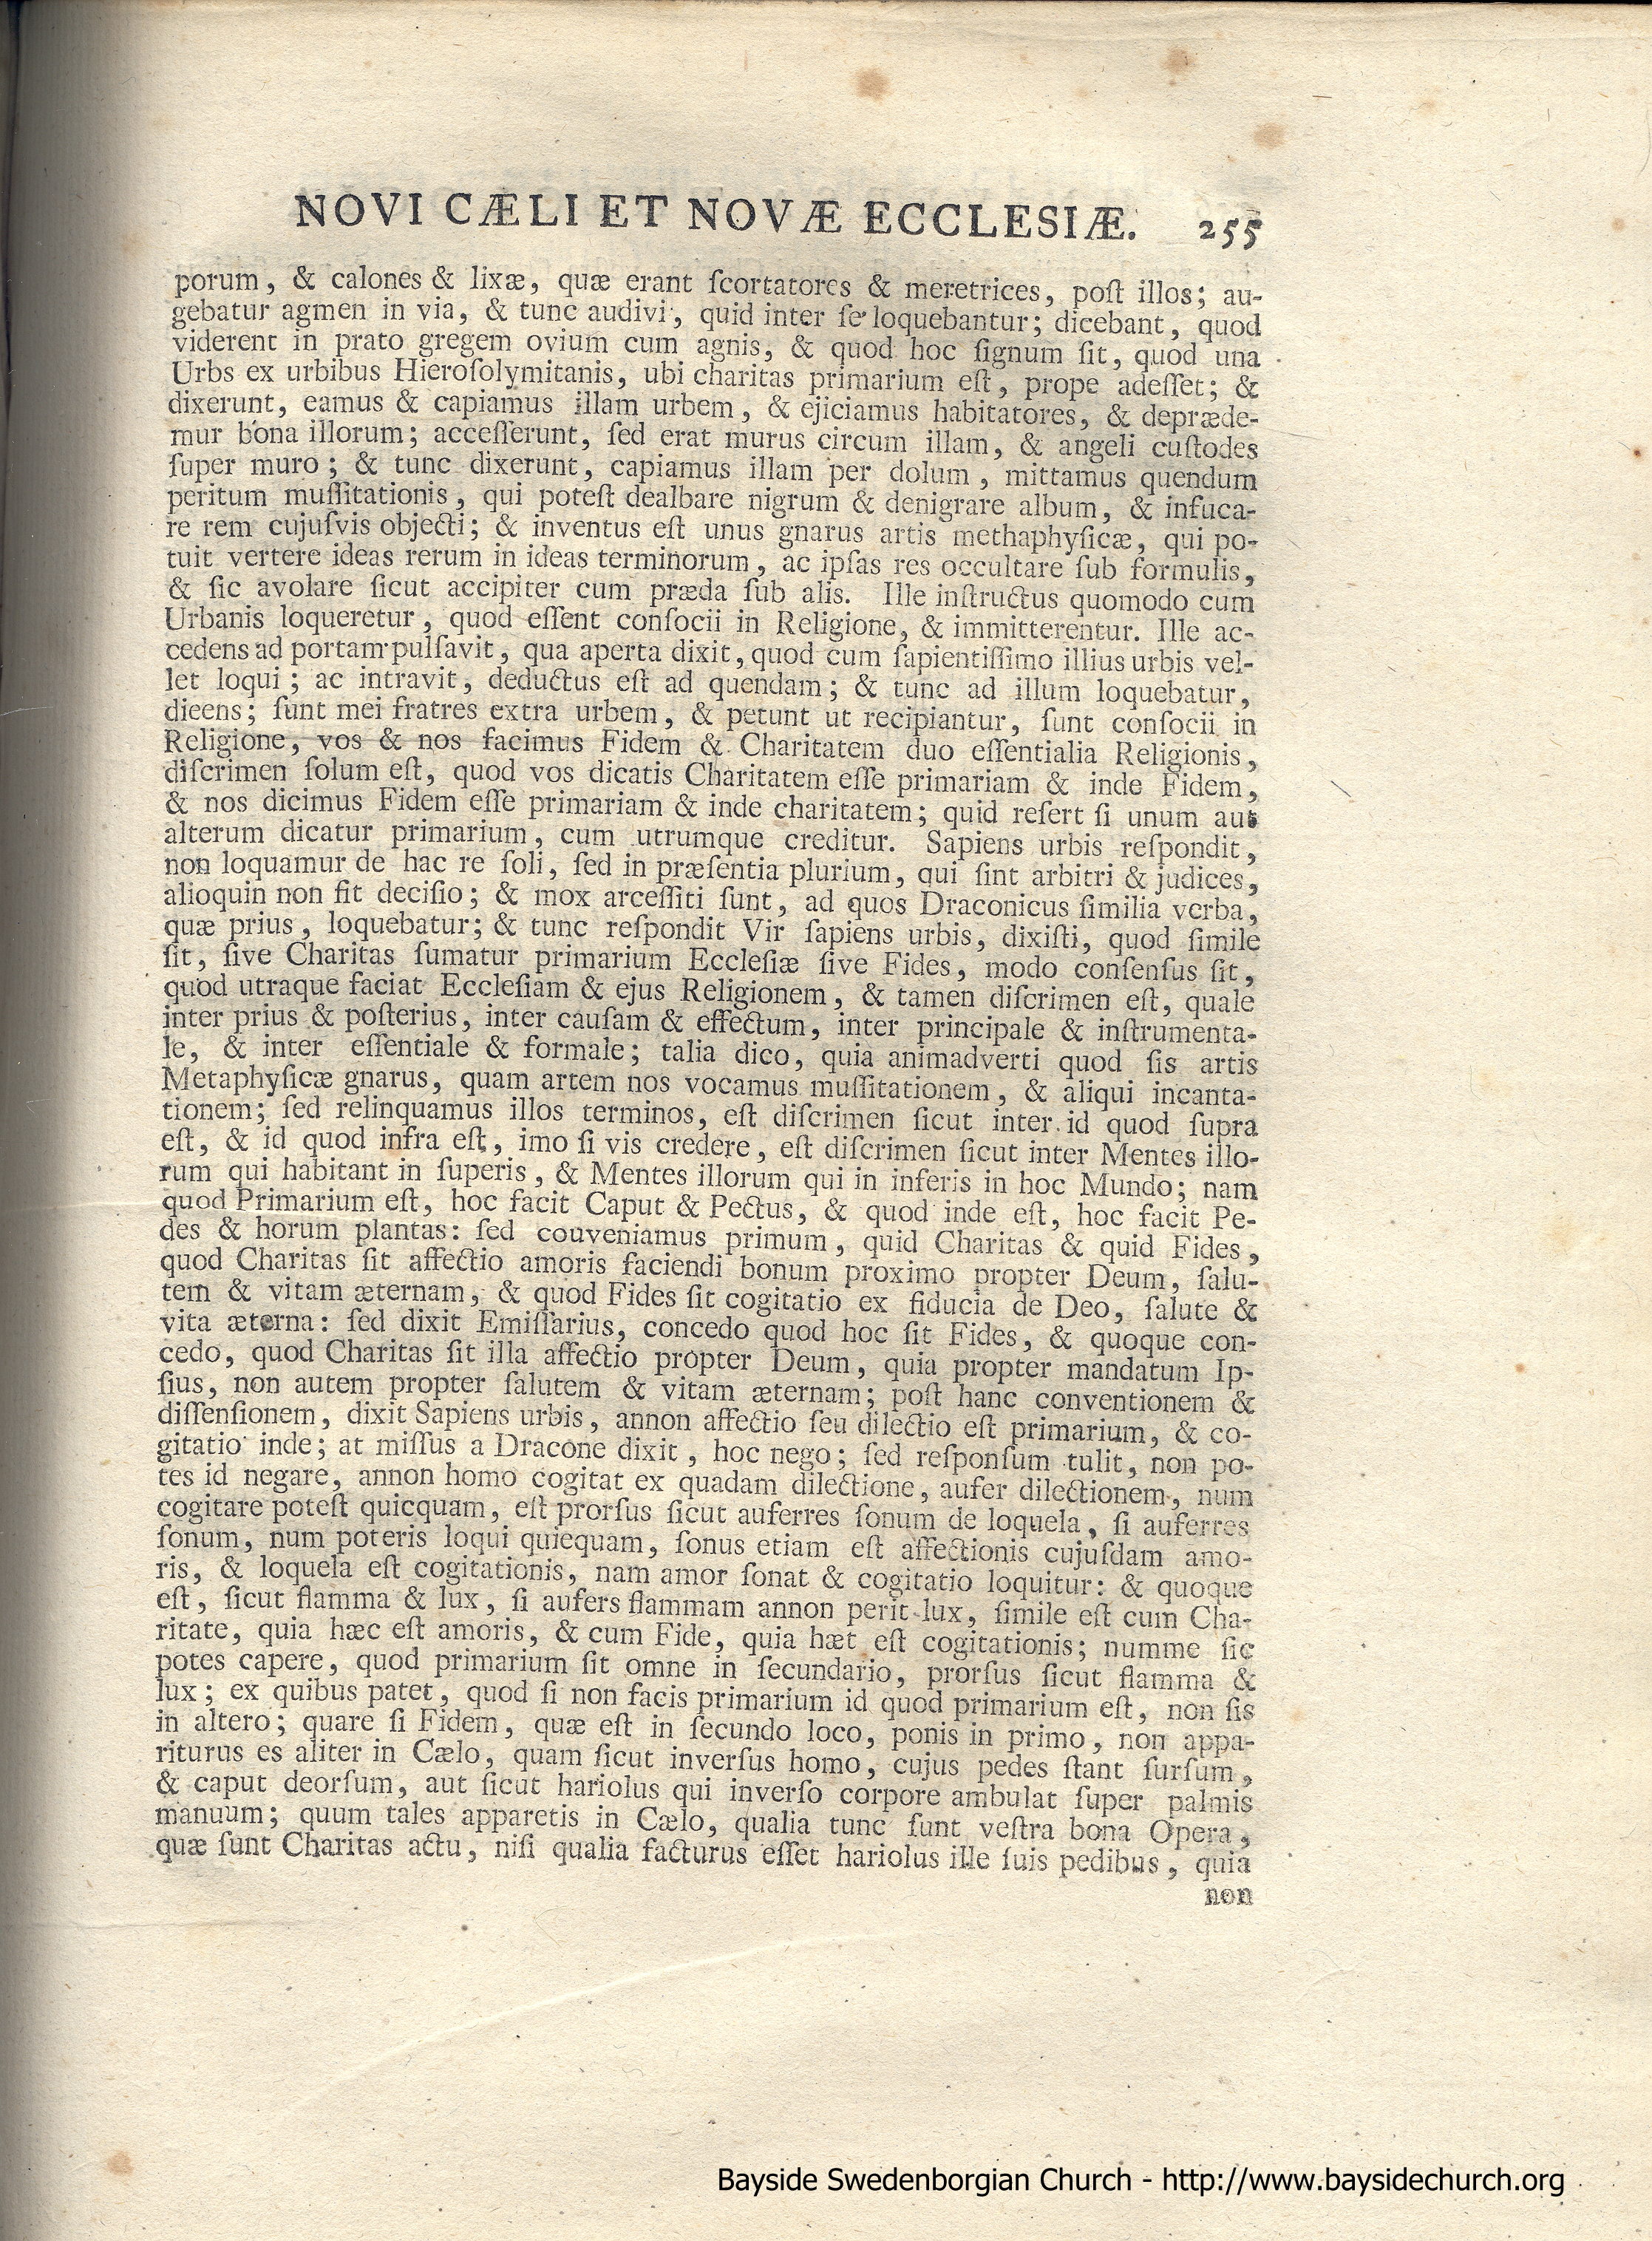 NOVI CÆLI ET NOVÆ ECCLESIÆ. 255
porum, & calones & lixæ, quæ erant ſcortatores & meretrices, poſt illos; au-
gebatur agmen in via, & tunc audivi, quid inter ſe loquebantur; dicebant, quod
viderent in prato gregem ovium cum agnis, & quod hoc ſignum ſit, quod una
Urbs ex urbibus Hieroſolymitanis, ubi charitas primarium eſt, prope adeſſet; &
dixerunt, eamus & capiamus illam urbem, & ejiciamus habitatores, & depræde-
mur bona illorum; acceſſerunt, ſed erat murus circum illam, & angeli cuſtodes
ſuper muro; & tunc dixerunt, capiamus illam per dolum, mittamus quendam
peritum muſſitationis, qui poteſt dealbare nigrum & denigrare album, & infuca-
re rem cujuſvis objecti; & inventus eſt unus gnarus artis methaphyſicæ, qui po-
tuit vertere ideas rerum in ideas terminorum, ac ipſas res occultare ſub formulis,
& ſic avolare ſicut accipiter cum præda ſub alis. Ille inſtructus quomodo cum
Urbanis loqueretur, quod eſſent conſocii in Religione, & immitterentur. Ille ac-
cedens ad portam pulſavit, qua aperta dixit, quod cum ſapientiſſimo illius urbis vel-
let loqui; ac intravit, deductus eſt ad quendam; & tunc ad illum loquebatur,
dicens; ſunt mei fratres extra urbem, & petunt ut recipiantur, ſunt conſocii in
Religione, vos & nos facimus Fidem & Charitatem duo eſſentialia Religionis,
diſcrimen ſolum eſt, quod vos dicatis Charitatem eſſe primariam & inde Fidem,
& nos dicimus Fidem eſſe primariam & inde charitatem; quid refert ſi unum aut
alterum dicatur primarium, cum utrumque creditur. Sapiens urbis reſpondit,
non loquamur de hac re ſoli, ſed in præſentia plurium, qui ſint arbitri & judices,
alioquin non fit deciſio; & mox arceſſiti ſunt, ad quos Draconicus ſimilia verba,
quæ prius, loquebatur; & tunc reſpondit Vir ſapiens urbis, dixiſti, quod ſimile
ſit, ſive Charitas ſumatur primarium Eccleſiæ ſive Fides, modo conſenſus ſit,
quod utraque faciat Eccleſiam & ejus Religionem, & tamen diſcrimen eſt, quale
inter prius & poſterius, inter cauſam & effectum, inter principale & inſtrumenta-
le, & inter eſſentiale & formale; talia dico, quia animadverti quod ſis artis
Metaphyſicæ gnarus, quam artem nos vocamus muſſitationem, & aliqui incanta-
tionem; ſed relinquamus illos terminos, eſt diſcrimen ſicut inter id quod ſupra
eſt, & id quod infra eſt, imo ſi vis credere, eſt diſcrimen ſicut inter Mentes illo-
rum qui habitant in ſuperis, & Mentes illorum qui in inferis in hoc Mundo; nam
quod Primarium eſt, hoc facit Caput & Pectus, & quod inde eſt, hoc facit Pe-
des & horum plantas: ſed conveniamus primum, quid Charitas & quid Fides,
quod Charitas ſit affectio amoris faciendi bonum proximo propter Deum, ſalu-
tem & vitam æternam, & quod Fides ſit cogitatio ex fiducia de Deo, ſalute &
vita æterna: ſed dixit Emiſſarius, concedo quod hoc ſit Fides, & quoque con-
cedo, quod Charitas ſit illa affectio propter Deum, quia propter mandatum Ip-
ſius, non autem propter ſalutem & vitam æternam; poſt hanc conventionem &
diſſenſionem, dixit Sapiens urbis, annon affectio ſeu dilectio eſt primarium, & co-
gitatio inde; at miſſus a Dracone dixit, hoc nego; ſed reſponſum tulit, non po-
tes id negare, annon homo cogitat ex quadam dilectione, aufer dilectionem, num
cogitare poteſt quicquam, eſt prorſus ſicut auferres ſonum de loquela, ſi auferres
ſonum, num poteris loqui quicquam, ſonus etiam eſt affectionis cujuſdam amo-
ris, & loquela eſt cogitationis, nam amor ſonat & cogitatio loquitur: & quoque
eſt, ſicut flamma & lux, ſi aufers flammam annon perit lux, ſimile eſt cum Cha-
ritate, quia hæc eſt amoris, & cum Fide, quia hæt eſt cogitationis; numme ſic
potes capere, quod primarium ſit omne in ſecundario, prorſus ſicut flamma &
lux; ex quibus patet, quod ſi non facis primarium id quod primarium eſt, non ſis
in altero; quare ſi Fidem, quæ eſt in ſecundo loco, ponis in primo, non appa-
riturus es aliter in Cælo, quam ſicut inverſus homo, cujus pedes ſtant ſurſum,
& caput deorſum, aut ſicut hariolus qui inverſo corpore ambulat ſuper palmis
manuum; quum tales apparetis in Cælo, qualia tunc ſunt veſtra bona Opera,
quæ ſunt Charitas actu, niſi qualia facturus eſſet hariolus ille ſuis pedibus, quia
non
Bayside Swedenborgian Church - http://www.baysidechurch.org